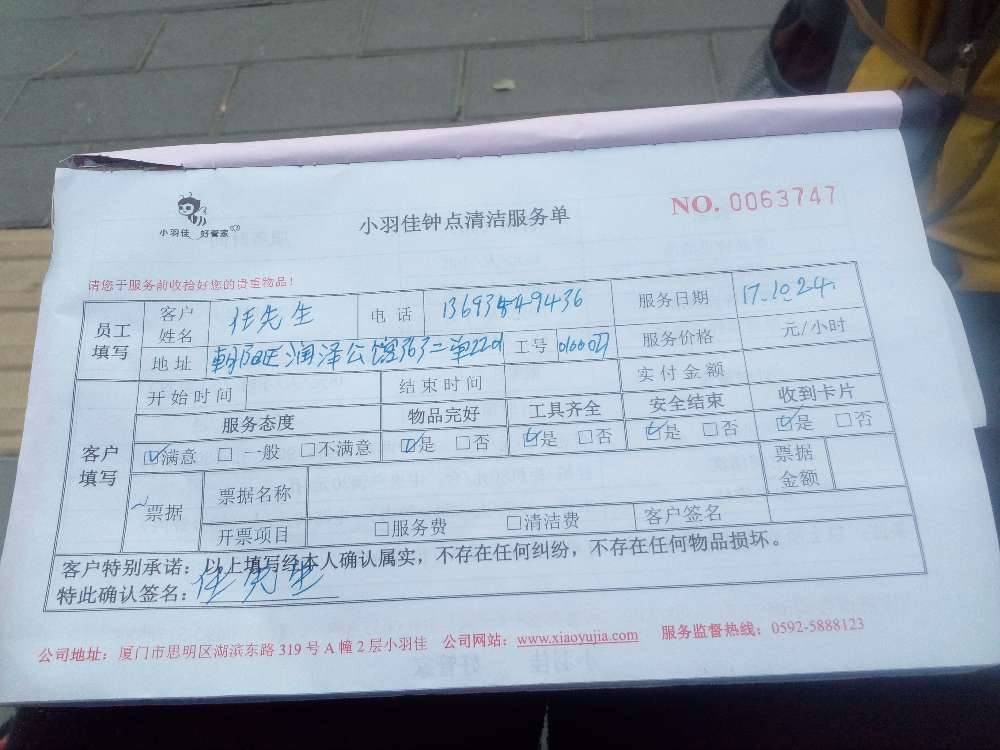 小羽佳 好管家
小羽佳钟点清洁服务单
NO. 0063747
请您于服务前收拾好您的贵重物品！
员工填写 客户姓名 任先生 电话 服务日期 17.10.24.
地址 朝阳区润泽公馆 工号 服务价格 元/小时
客户填写 开始时间 结束时间 实付金额
服务态度 物品完好 工具齐全 安全结束 收到卡片
☑满意 □一般 □不满意 ☑是 □否 ☑是 □否 ☑是 □否 ☑是 □否
票据 票据名称 票据金额
开票项目 □服务费 □清洁费 客户签名
客户特别承诺：以上填写经本人确认属实，不存在任何纠纷，不存在任何物品损坏。
特此确认签名：任先生
公司地址：厦门市思明区湖滨东路319号A幢2层小羽佳 公司网站：www.xiaoyujia.com 服务监督热线：0592-5888123